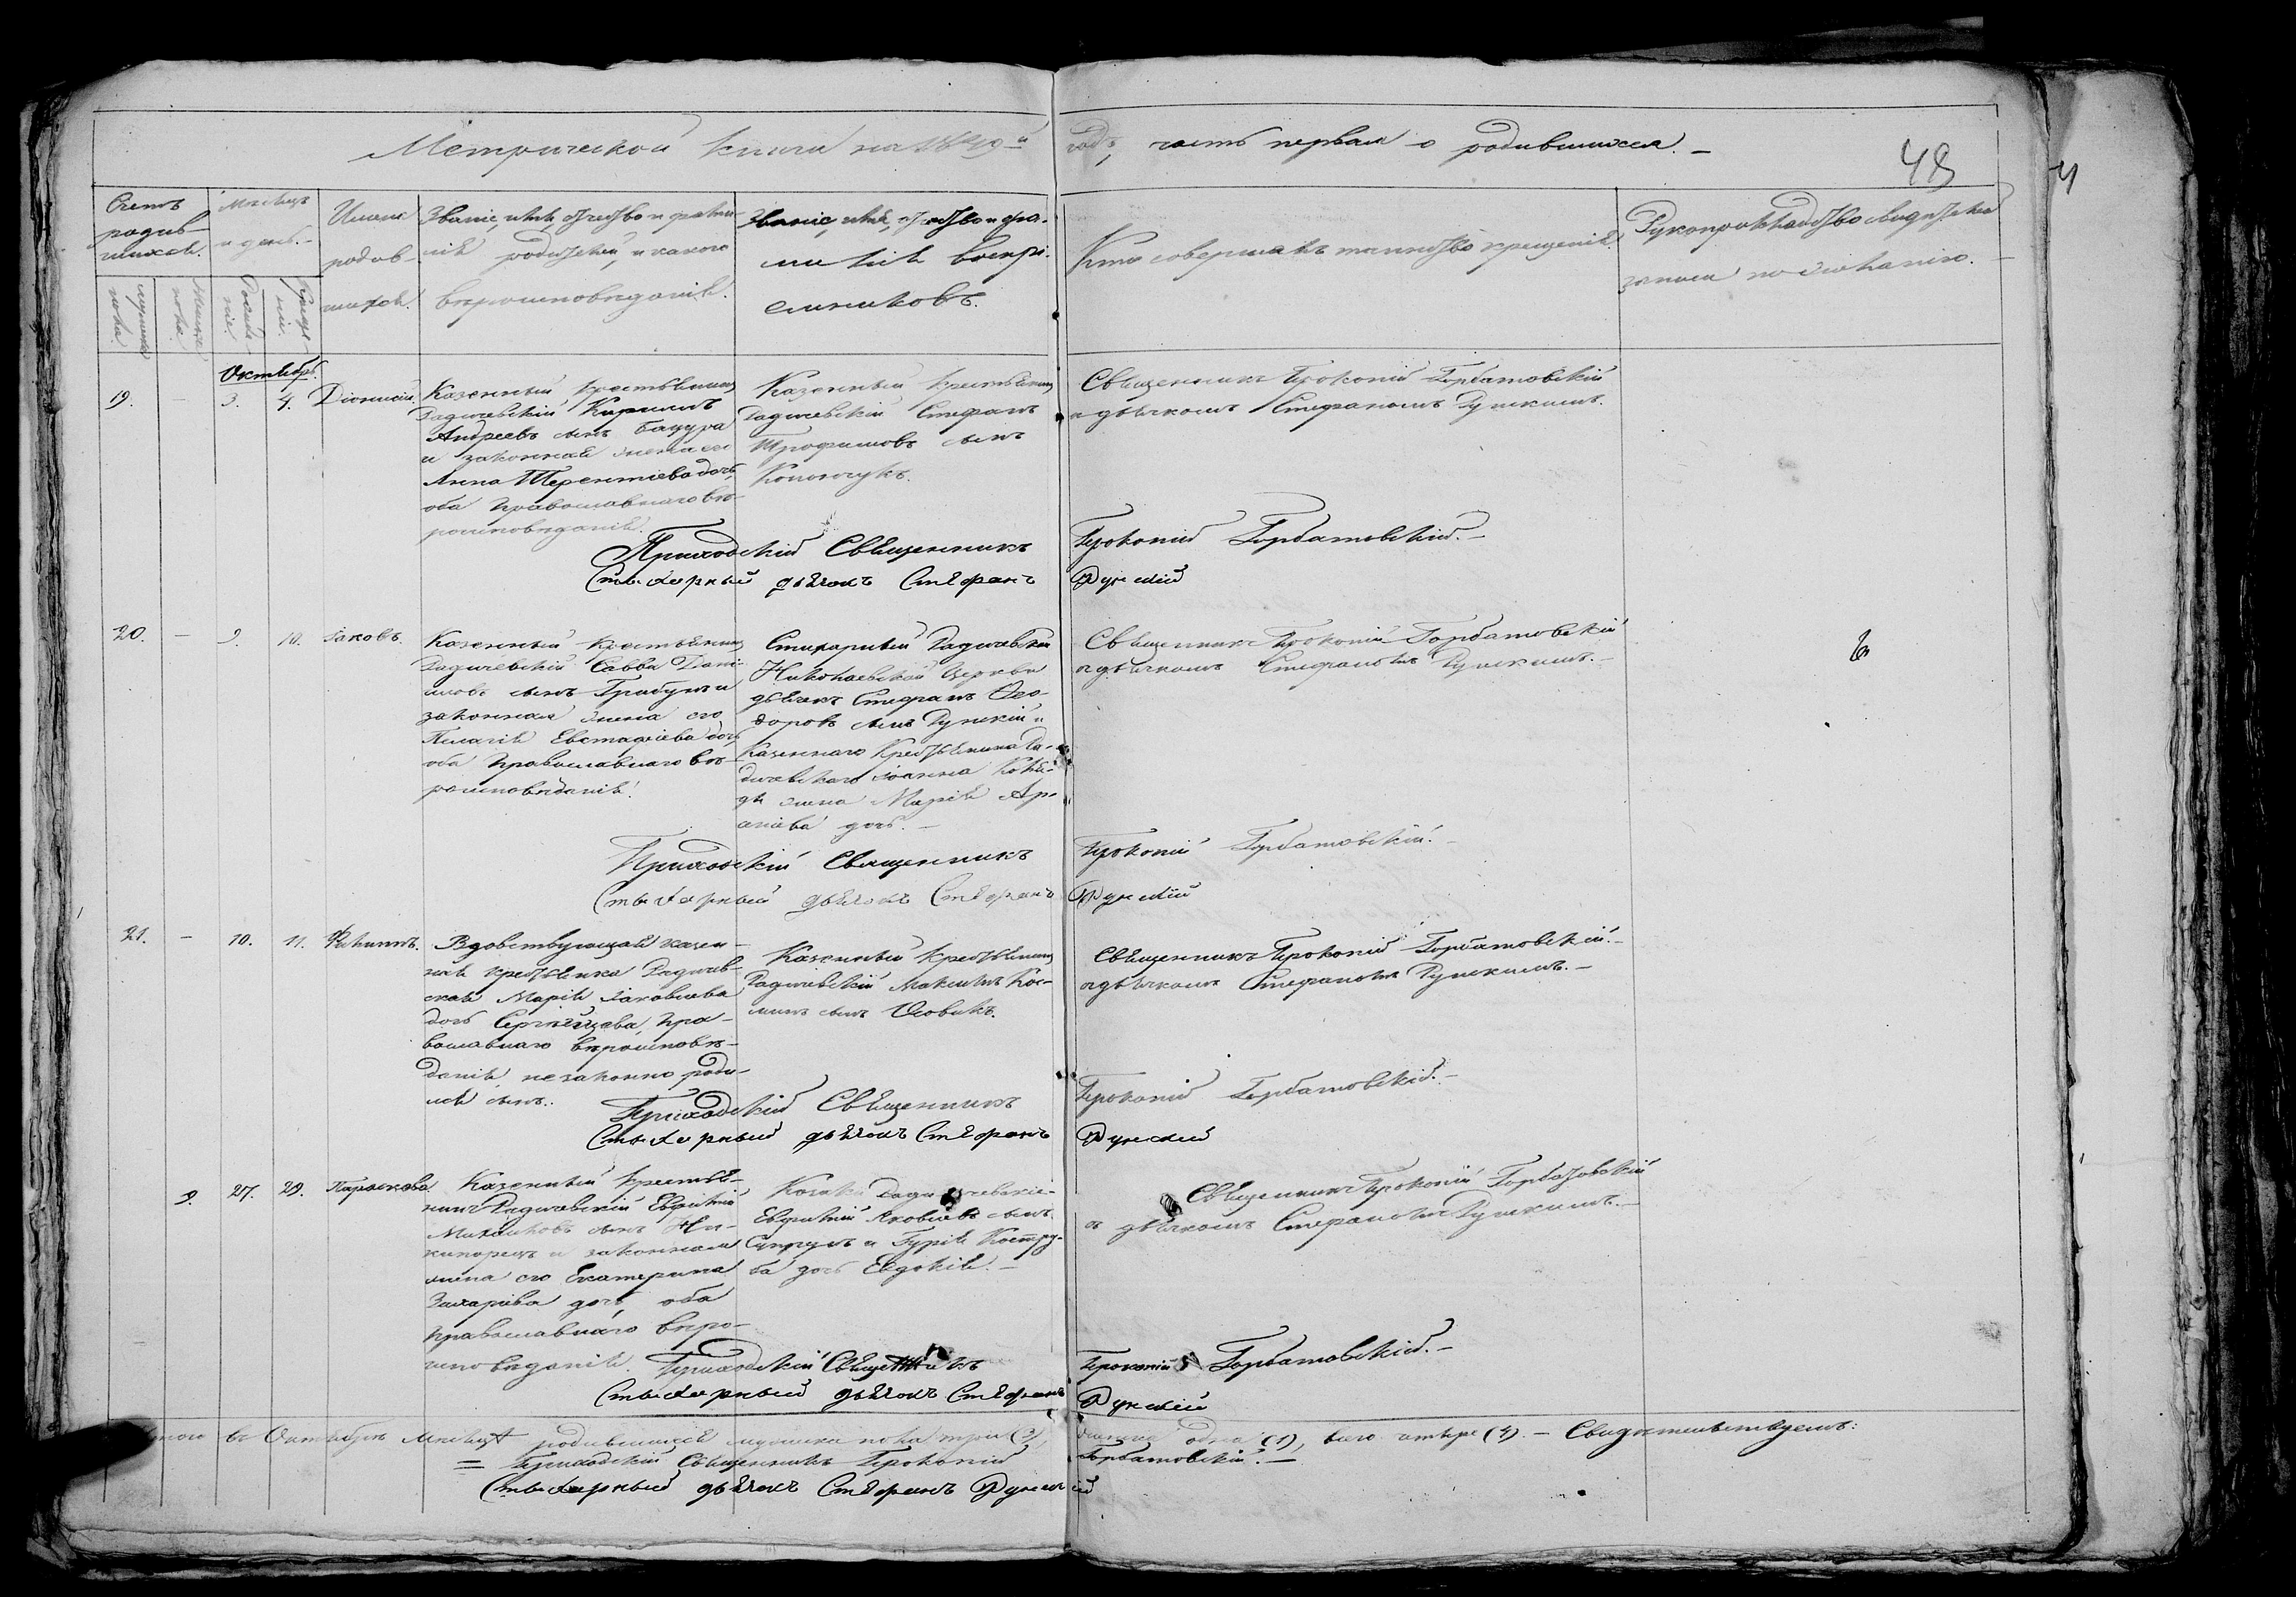 Метрической книги на 1849й годъ, часть первая о родившихся. –
48
Счетъ родив-шихся.
Мѣсяцъ и день. –
Имена родив-шихся.
Званіе, имя, отчество и фами-
лія родителей, и какого
вѣроисповѣданія.
Званіе, имя, отчество и фа-
милія воспрі-
емниковъ.
Кто совершалъ таинство крещенія.
Рукоприкладство свидѣтелей
записи по желанію. –
мужеска пола.
женска пола.
Рожде-нія.
Креще-нія.
Октябрь.
19. – 3. 4. Діонисій.
Казенный крестьянинъ
Радичевскій Кириллъ
Андреевъ сынъ Бацура
и законная жена его
Анна Терентіева дочь,
оба православнаго вѣ-
роисповѣданія.
Казенный крестьянинъ
Радичевскій Стефанъ
Трофимовъ сынъ
Священникъ Прокопій Горбатовскій
съ дьячкомъ Стефаномъ Рунскимъ.
Приходскій Священникъ Прокопій Горбатовскій. –
Стихарный дьячокъ Стефанъ Рунскій
20. – 9. 10. Іаковъ.
Казенный крестьянинъ
Радичевскій Савва Дани-
иловъ сынъ и
законная жена его
Пелагія Евстафіева дочь,
оба православнаго вѣ-
роисповѣданія.
Стихарный Радичевской
Николаевской Церкви
дьячекъ Стефанъ Ѳео-
доровъ сынъ Рунскій и
казеннаго крестьянина Ра-
дичевскаго Іоанна
жена Марія
дочь. –
Священникъ Прокопій Горбатовскій
съ дьячкомъ Стефаномъ Рунскимъ. –
Приходскій Священникъ Прокопій Горбатовскій. –
Стихарный дьячокъ Стефанъ Рунскій
21. – 10. 11. Филиппъ.
Вдовствующая казен-
ная крестьянка Радичев-
ская Марія Іаковлева
дочь пра-
вославнаго вѣроисповѣ-
данія, незаконно роди-
ся сынъ.
Казенный крестьянинъ
Радичевскій Максимъ Кос-
минъ сынъ Осовикъ.
Священникъ Прокопій Горбатовскій. –
съ дьячкомъ Стефаномъ Рунскимъ. –
Приходскій Священникъ Прокопій Горбатовскій. –
Стихарный дьячокъ Стефанъ Рунскій
9. 27. 29. Параскева.
Казенный крестья-
нинъ Радичевскій Евфимій
Михайловъ сынъ Ни-
и законная
жена его Екатерина
Захаріева дочь, оба
православнаго вѣро-
исповѣданія.
Козаки Радичевскіе –
Евфимій Яковлевъ сынъ
и Гурія Костру-
ба дочь Евдокія. –
Священникъ Прокопій Горбатовскій
съ дьячкомъ Стефаномъ Рунскимъ. –
Приходскій Священникъ Прокопій Горбатовскій. –
Стихарный дьячокъ Стефанъ Рунскій
въ Октябрѣ мѣсяцѣ родившихся мужеска пола три (3), женска одна (1), всего четыре (4). – Свидѣтельствуемъ:
= Приходскій Священникъ Прокопій Горбатовскій. –
Стихарный дьячокъ Стефанъ Рунскій